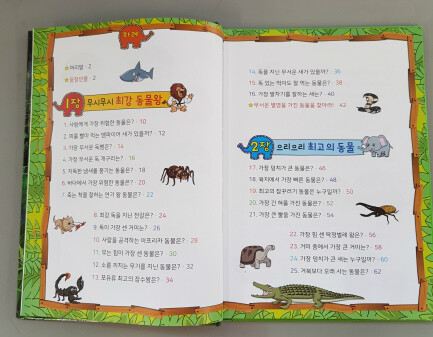 차례
★머리말 · 2
★등장인물 · 2
1장 무시무시 최강 동물왕
1. 사람에게 가장 위험한 동물은? · 10
2. 피를 빨아 먹는 뱀파이어 새가 있을까? · 12
3. 가장 무서운 독뱀은? · 14
4. 가장 무서운 독 개구리는? · 16
5. 지독한 냄새를 풍기는 동물은? · 18
6. 바다에서 가장 위험한 동물은? · 20
7. 죽는 척을 잘하는 연기 왕 동물은? · 22
8. 최강 독을 지닌 전갈은? · 24
9. 독이 가장 센 거미는? · 26
10. 사람을 공격하는 아프리카 동물은? · 28
11. 무는 힘이 가장 센 동물은? · 30
12. 소름 끼치는 무기를 지닌 동물은? · 32
13. 포유류 최고의 잠수왕은? · 34
14. 독을 지닌 무서운 새가 있을까? · 36
15. 독 있는 먹이도 잘 먹는 동물은? · 38
16. 가장 발차기를 잘하는 새는? · 40
★무서운 별명을 가진 동물을 찾아라! · 42
2장 으리으리 최고의 동물
17. 가장 덩치가 큰 동물은? · 46
18. 육지에서 가장 빠른 동물은? · 48
19. 최고의 잠꾸러기 동물은 누구일까? · 50
20. 가장 긴 혀를 가진 동물은? · 52
21. 가장 큰 뿔을 가진 동물은? · 54
22. 가장 힘 센 딱정벌레 왕은? · 56
23. 거미 중에서 가장 큰 거미는? · 58
24. 가장 덩치가 큰 새는 누구일까? · 60
25. 거북보다 오래 사는 동물은? · 62